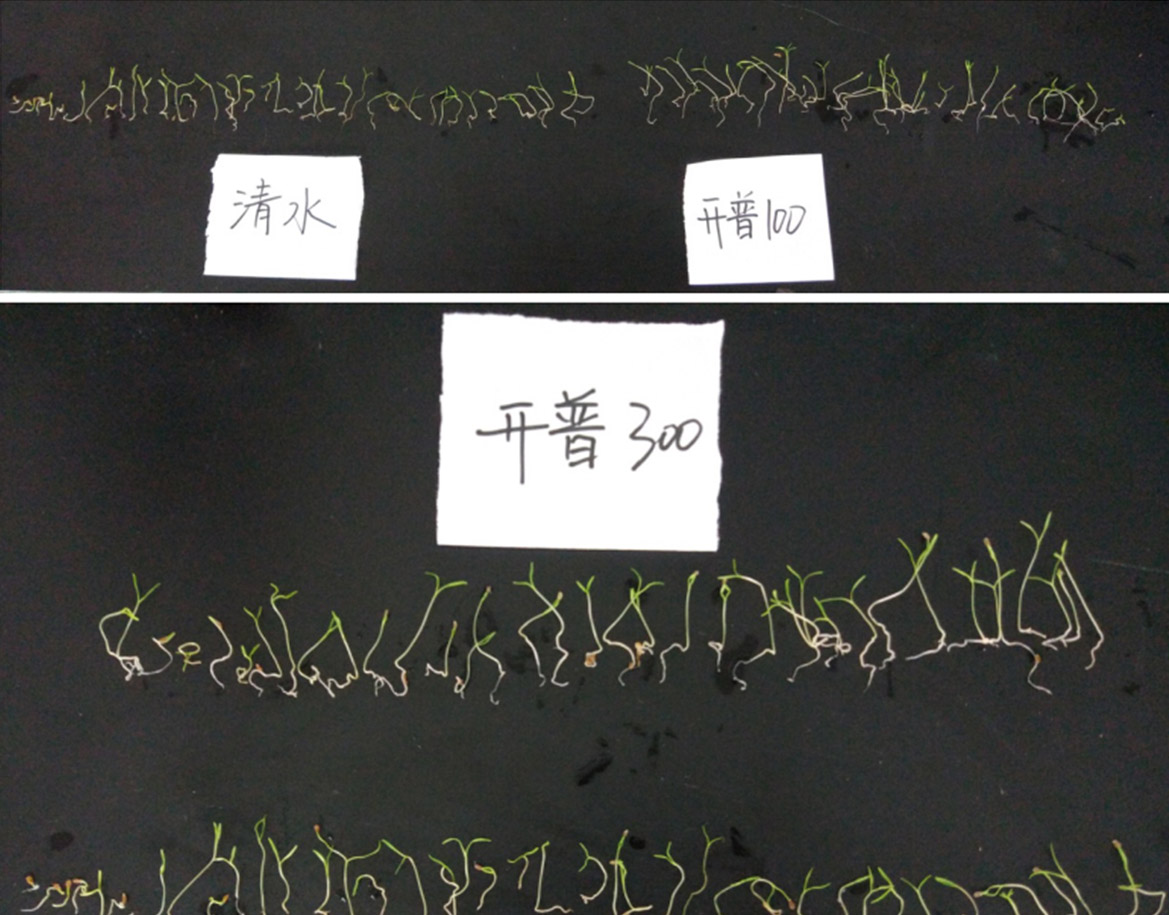 清水
开普100
开普300